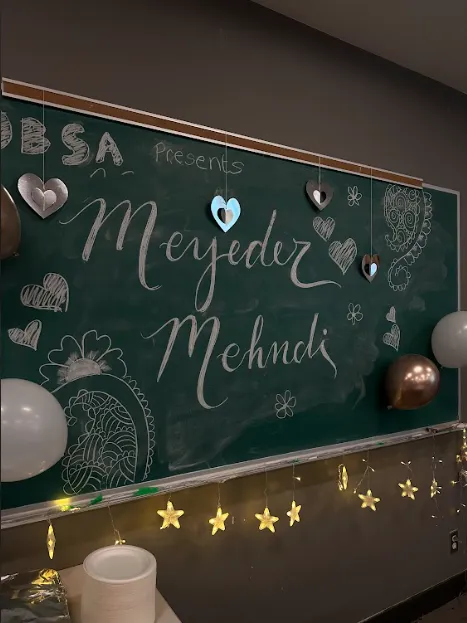 BSA Presents
Meyedez
Mehndi